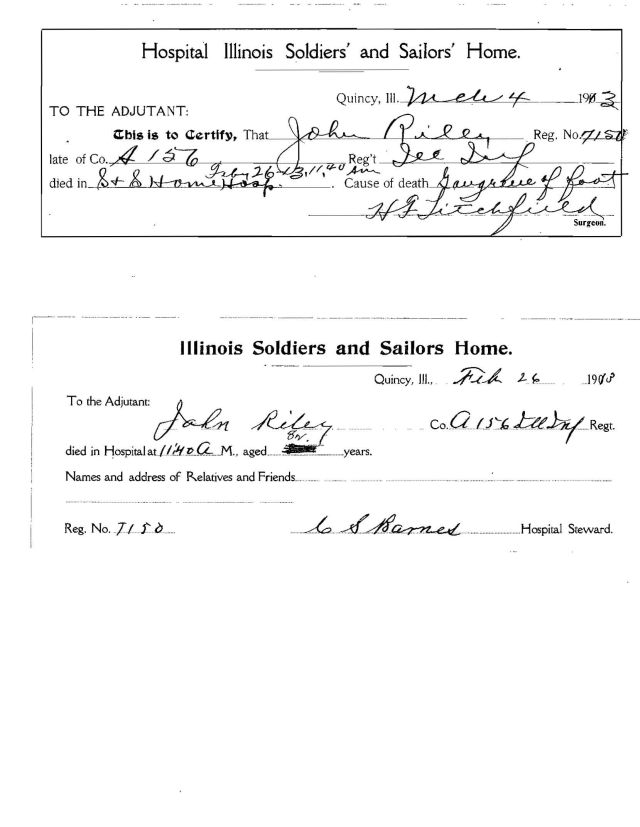 Hospital Illinois Soldiers' and Sailors' Home.
Quincy, Ill. Mch 4 1913
TO THE ADJUTANT:
This is to Certify, That John Riley Reg. No. 7150
late of Co. A 156 Reg't Ill Inf
died in S & S Home Hosp. Feby 26-13, 11,40 am Cause of death Gangrene of foot
H F Litchfield
Surgeon.
Illinois Soldiers and Sailors Home.
Quincy, Ill., Feb 26 1913
To the Adjutant:
John Riley Co. A 156 Ill Inf Regt.
died in Hospital at 11:40 A M., aged years.
Names and address of Relatives and Friends
Reg. No. 7150 C S Barnes Hospital Steward.